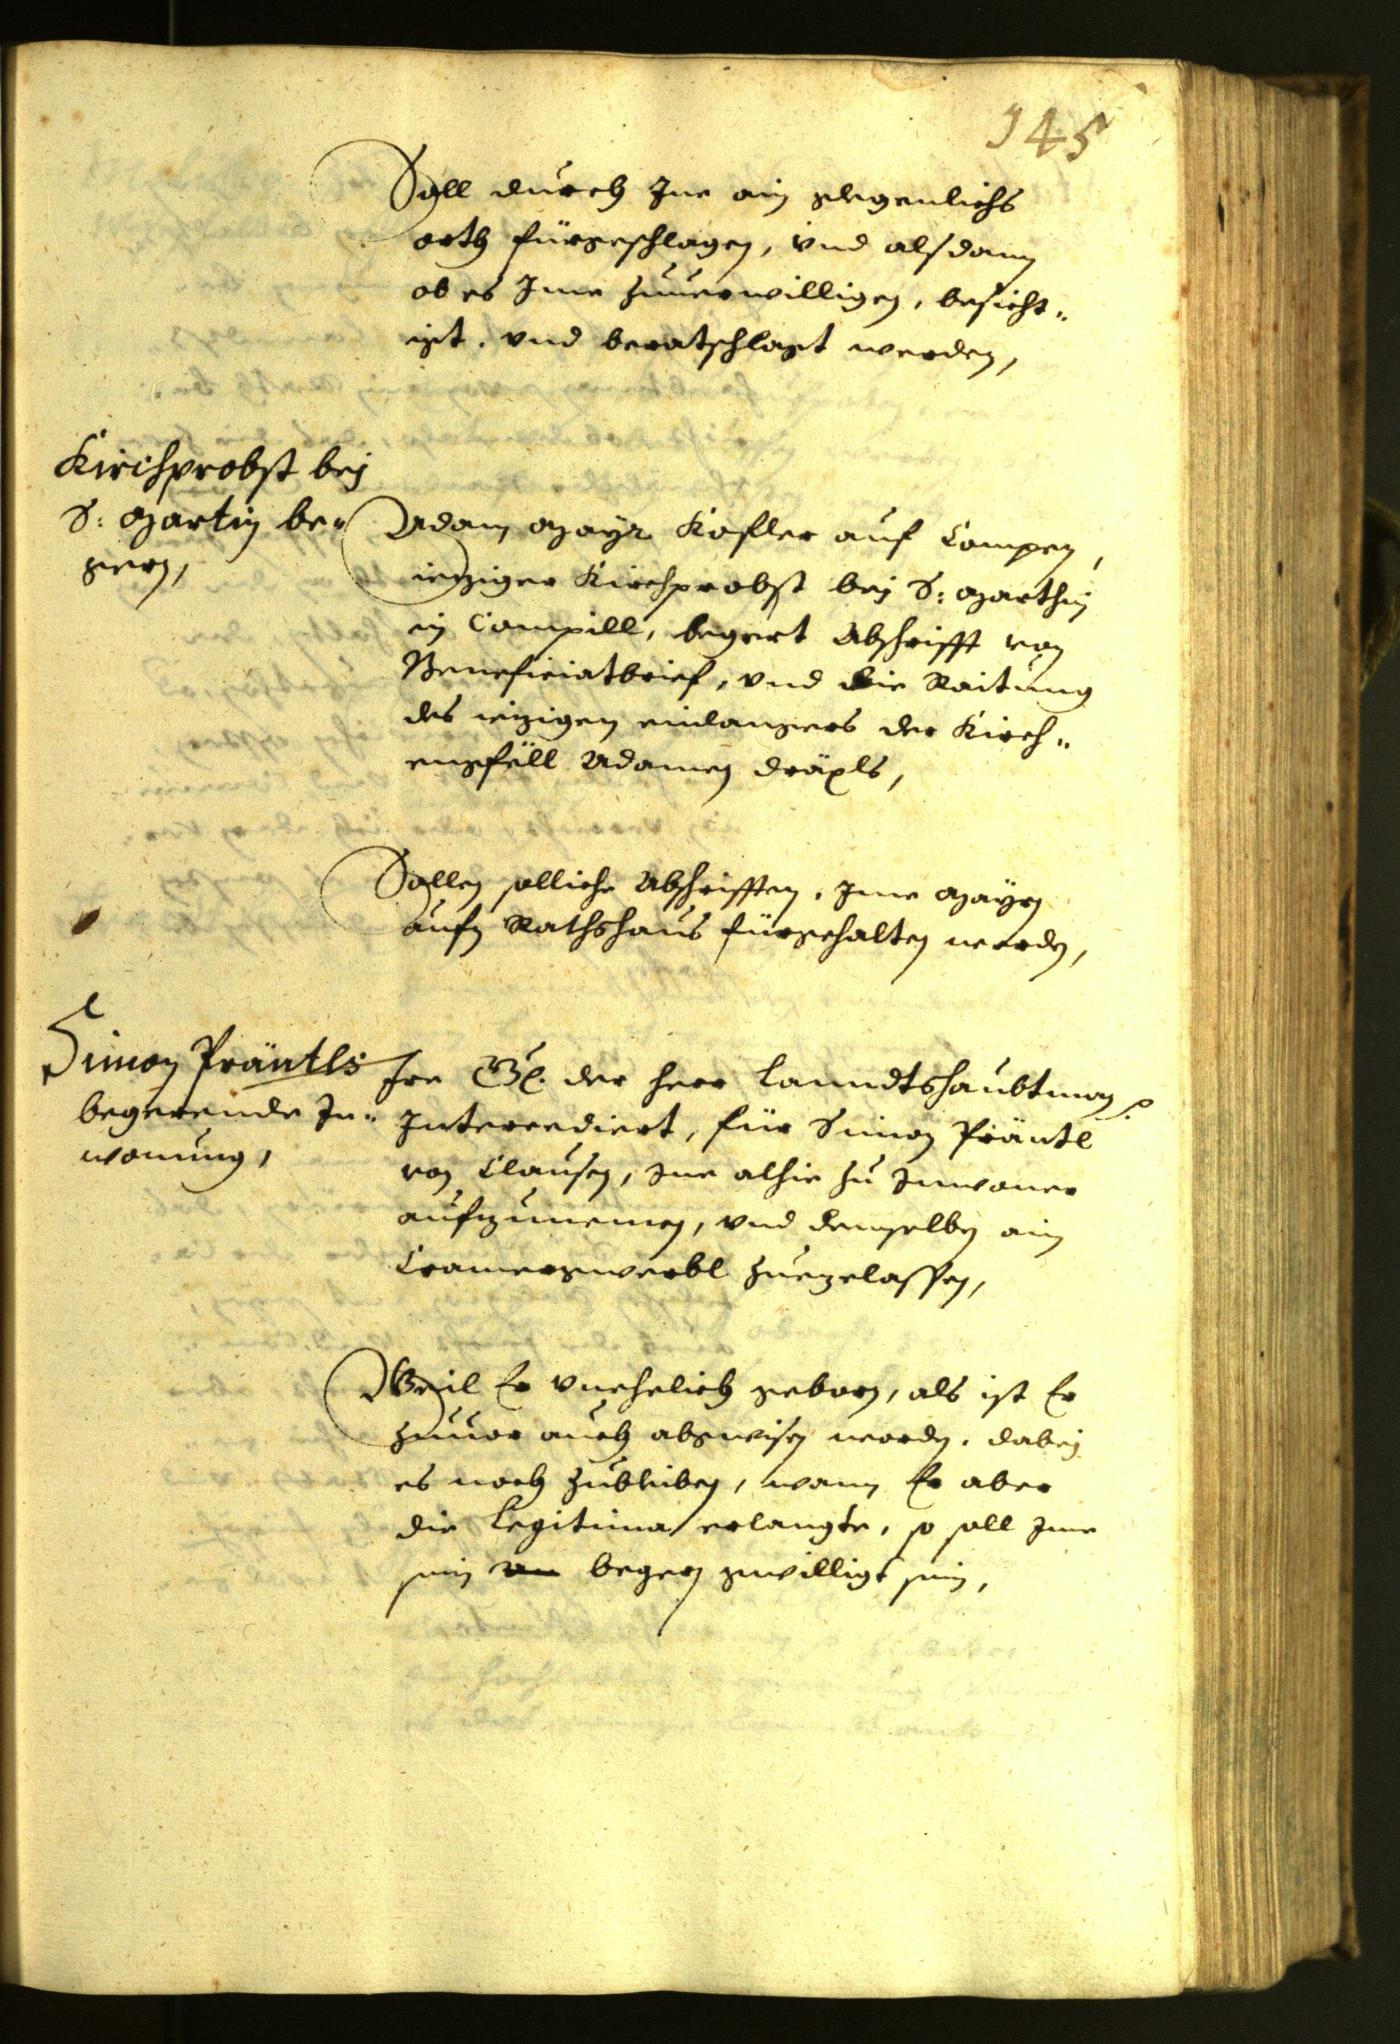 145
Soll durch Ine ain glegenlichs
orth fürgeschlagen, vnd alsdann
ob es Ime zuuerwilligen, besicht„
igt. vnd beratschlagt werden,
Kirchprobst bej
S: Martin be„
gern,
Adam Mayr Kofler auf Campen,
ieziger Kirchprobst bej S: Marthin
in Campill, begert Abschrifft von
Beneficiatbrief, vnd die Raitung
des iezigen einlangers der Kirch„
engfäll Adamen dräxls,
Sollen solliche Abschrifften, Ime Mayrn
aufm Rathshaus fürgehalten werden,
Simon Präntls
begerende In„
wonung,
Ire Gn. der herr Lanndtshaubtman p.
Intercediert, für Simon Präntl
von Clausen, Ine alhie zu Inwoner
aufzunemen, vnd demselben ain
Cramergwerbl zuezelassen,
Weil Er vnehelich geborn, als ist Er
zuuor auch abgwisen worden, dabej
es noch zubleiben, wann Er aber
die Legitima erlangte, so soll Ime
sein begern gwilligt sein,